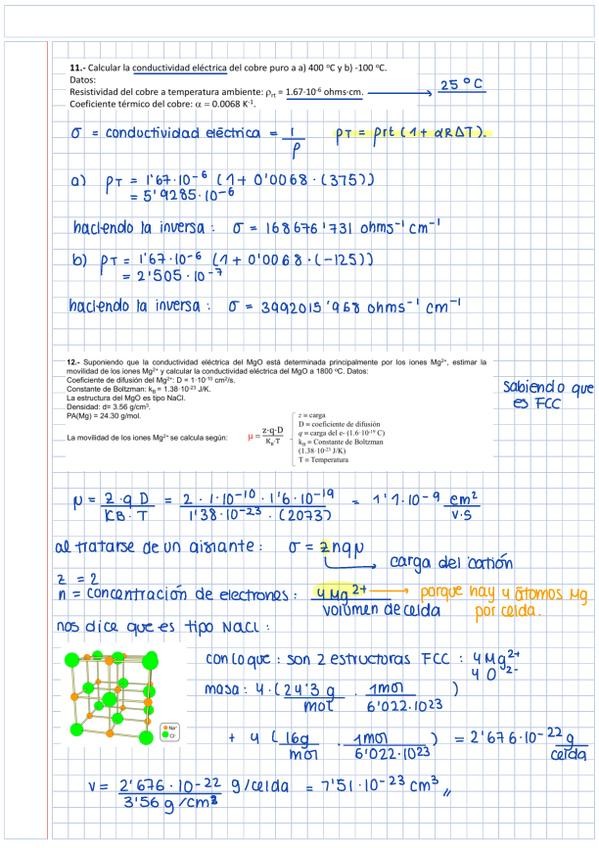 11.- Calcular la conductividad eléctrica del cobre puro a a) 400 ºC y b) -100 ºC.
Datos:
Resistividad del cobre a temperatura ambiente: ρrt = 1.67·10⁻⁶ ohms·cm. → 25 ºC
Coeficiente térmico del cobre: α = 0.0068 K⁻¹.
σ = conductividad eléctrica = 1/ρ ρT = ρrt (1 + αRΔT).
a) ρT = 1'67·10⁻⁶ (1 + 0'0068 · (375))
= 5'9285·10⁻⁶
haciendo la inversa : σ = 168676'731 ohms⁻¹ cm⁻¹
b) ρT = 1'67·10⁻⁶ (1 + 0'0068 · (-125))
= 2'505 · 10⁻⁷
haciendo la inversa : σ = 3992015'968 ohms⁻¹ cm⁻¹
12.- Suponiendo que la conductividad eléctrica del MgO está determinada principalmente por los iones Mg²⁺, estimar la
movilidad de los iones Mg²⁺ y calcular la conductividad eléctrica del MgO a 1800 ºC. Datos:
Coeficiente de difusión del Mg²⁺: D = 1·10⁻¹⁰ cm²/s.
Constante de Boltzman: kB = 1.38·10⁻²³ J/K.
La estructura del MgO es tipo NaCl.
Densidad: d= 3.56 g/cm³.
PA(Mg) = 24.30 g/mol.
sabiendo que
es FCC
La movilidad de los iones Mg²⁺ se calcula según: μ = z·q·D / KB·T
z = carga
D = coeficiente de difusión
q = carga del e- (1.6·10⁻¹⁹ C)
kB = Constante de Boltzman
(1.38·10⁻²³ J/K)
T = Temperatura
μ = z·q D / KB·T = 2 · 1·10⁻¹⁰ · 1'6·10⁻¹⁹ / 1'38·10⁻²³ · (2073) = 1'1·10⁻⁹ cm² / V·S
al tratarse de un aislante : σ = znqμ
carga del catión
z = 2
n = concentración de electrones : 4Mg²⁺ / volumen de celda → porque hay 4 átomos Mg
por celda.
nos dice que es tipo NaCl :
con lo que : son 2 estructuras FCC : 4Mg²⁺
4 O²⁻
masa : 4 · (24'3 g / mol · 1mol / 6'022·10²³)
+ 4 (16g / mol · 1mol / 6'022·10²³) = 2'676·10⁻²² g / celda
Na⁺
Cl⁻
V = 2'676 · 10⁻²² g/celda / 3'56 g/cm³ = 7'51·10⁻²³ cm³ //